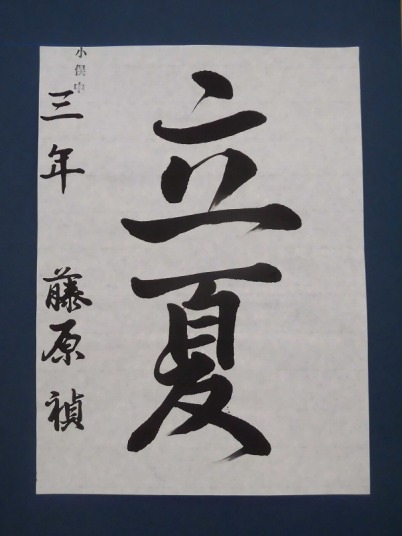 立夏
小俣中
三年 藤原 禎